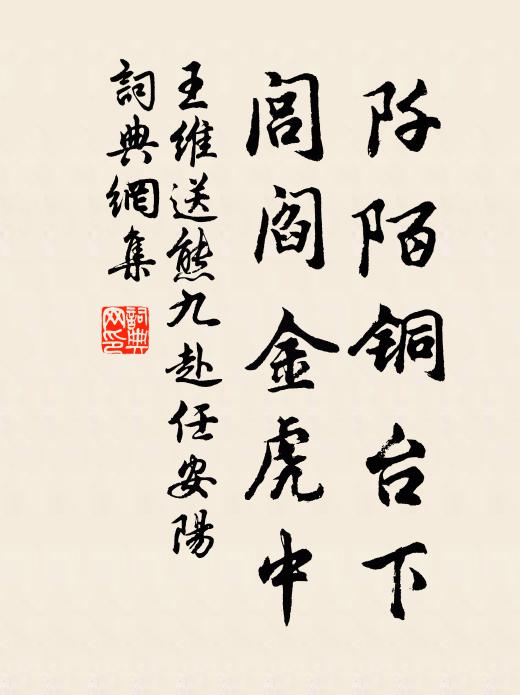 阡陌铜台下
闾阎金虎中
王维送熊九赴任安陽
詞典網集
詞典网印